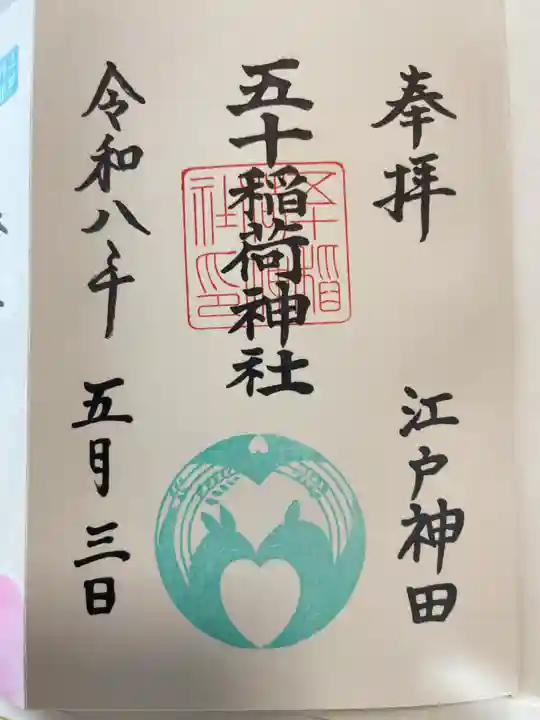 奉拝
江戸神田
五十稲荷神社
令和八年
五月三日